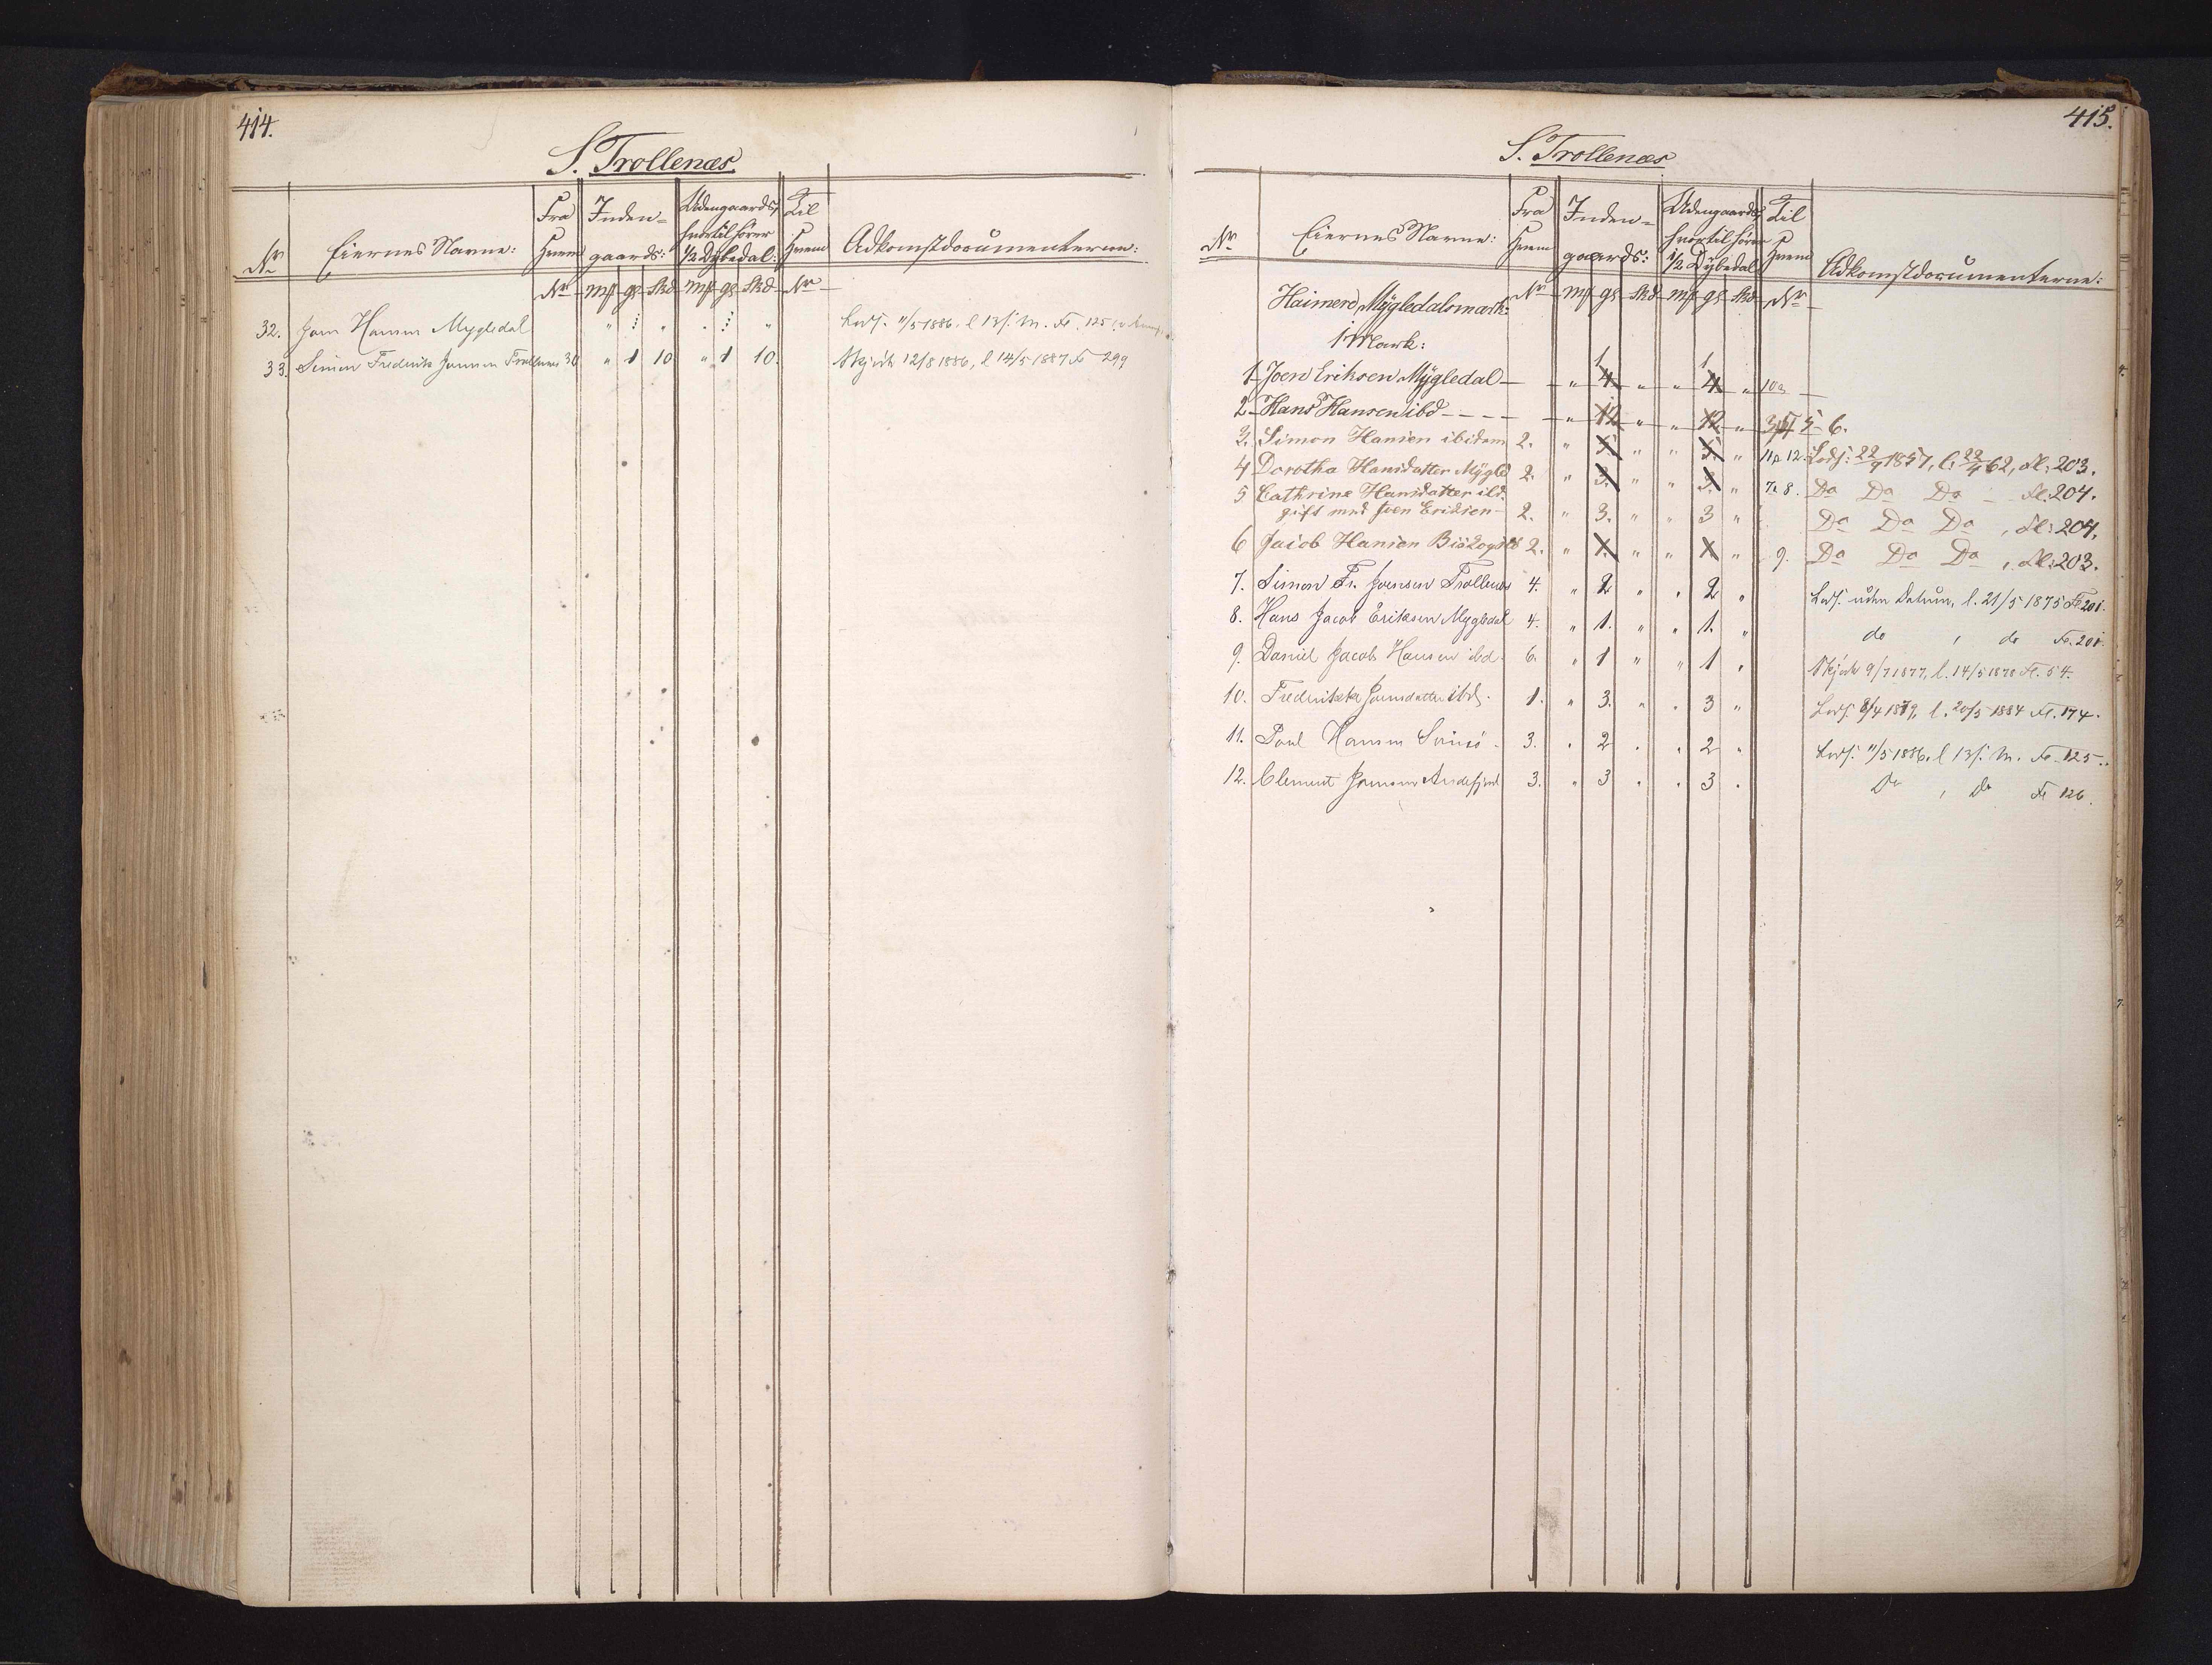 414.
S. Trollenæs.
Nr Eiernes Navne: Fra Hvem Inden-gaards: Udengaards, hvortil hører 1/2 Dybedal: Til Hvem Adkomstdocumenterne:
Nr mk gl Skd mk gl Skd Nr
32. Joen Hansen Mygledal " " " " Lovf. 11/5 1886. l 13/s. M. Fo. 125
33. Simon Frederik Joensen Trollenæs 30 " 1 10 " 1 10. Skjøde 12/8 1886, l 14/5 1887 Fo 299
415.
S. Trollenæs
Nr Eiernes Navne: Fra Hvem Inden-gaards: Udengaards, hvortil hører 1/2 Dybedal Til Hvem Adkomstdocumenterne:
Nr mk gl Skd mk gl Skd Nr
Haimero Mÿgledalsmark:
1 Mark:
1 Joen Eriksen Mÿgledal — — " 4 1 " " 4 1 " 10
2 Hans Hansen ibd - - - - — " 12 " " 12 " 3, 4, 5 - 6.
3. Simon Hansen ibidem 2. " 5 " " 5. " 11 & 12. Lovf: 22/9 1857, l: 22/4 62, Fol: 203.
4 Dorothea Hansdatter Mÿgld 2. " 3. " " 3. " 7 & 8. Do Do Do - Fol. 204.
5 Cathrine Hansdatter ibd.
gift med Joen Eriksen - 2. " 3. " " 3 " Do Do Do, Fol: 204.
6 Jacob Hansen 2. " 1. " " 1 " 9. Do Do Do, Fol: 203.
7. Simon Fr. Joensen Trollenæs 4. " 2 " " 2 " Lovf. uden Datum, l. 21/5 1875 Fo 201.
8. Hans Jacob Eriksen Mygledal 4. " 1. " " 1. " do, do Fo. 201.
9. Daniel Jacob Hansen ibd. 6. " 1 " " 1 " Skjøde 9/7 1877, l. 14/5 1878 Fo. 54.
10. Frederikke Joensdatter ibd. 1. " 3. " " 3 " Lovf. 8/4 1879, l. 20/5 1884 Fo. 174.
11. Poul Hansen Svinø - 3. " 2 " " 2 " Lovf. 11/5 1886. l 13/s. M. Fo. 125.
12. Clement Joensen Andefjord 3. " 3 " " 3 " Do, Do Fo 126.